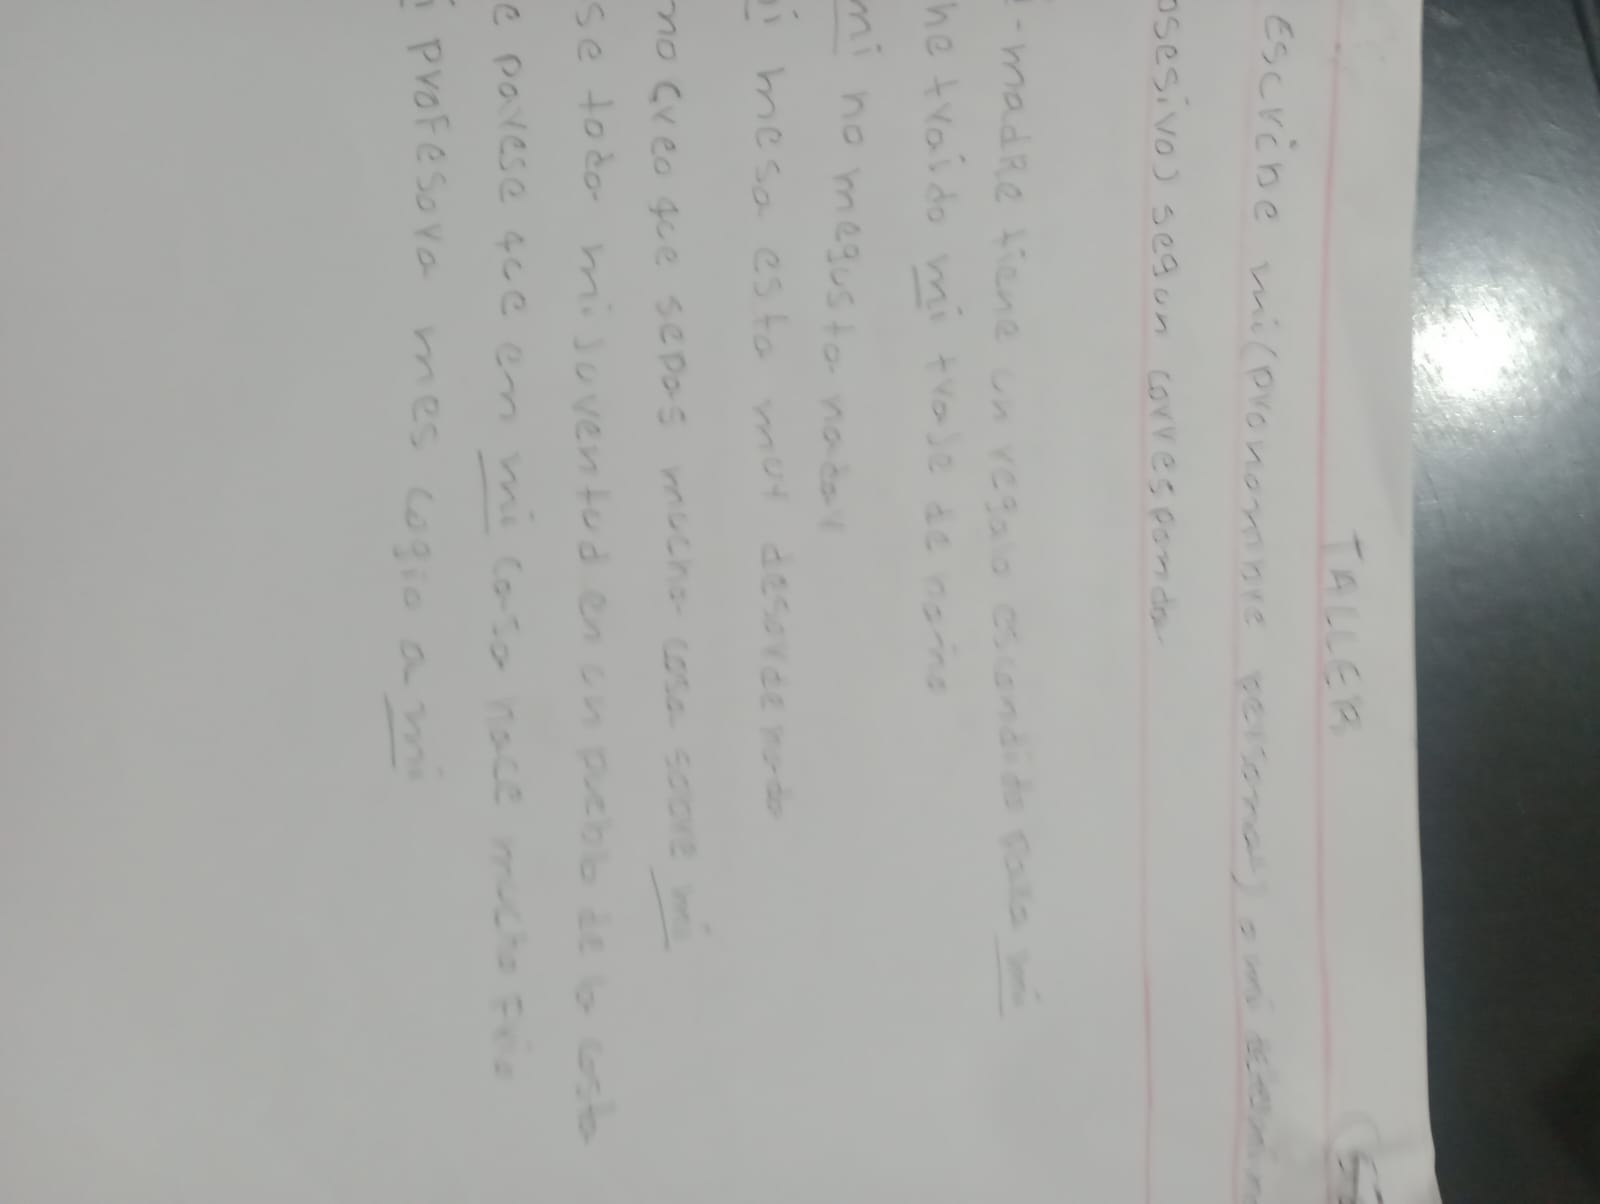 TALLER
escribe mi (pronombre personal) o mi
osesivo) segun corresponda
-madRe tiene un regalo escondido para mi
he traido mi traje de
mi no me gusta nadar
i mesa esta muy desordenado
no creo que sepas mucha cosa sobre mi
se todo mi juventud en un pueblo de la costa
e parese que en mi casa hace mucho Frio
i proFesora mes cogio a mi